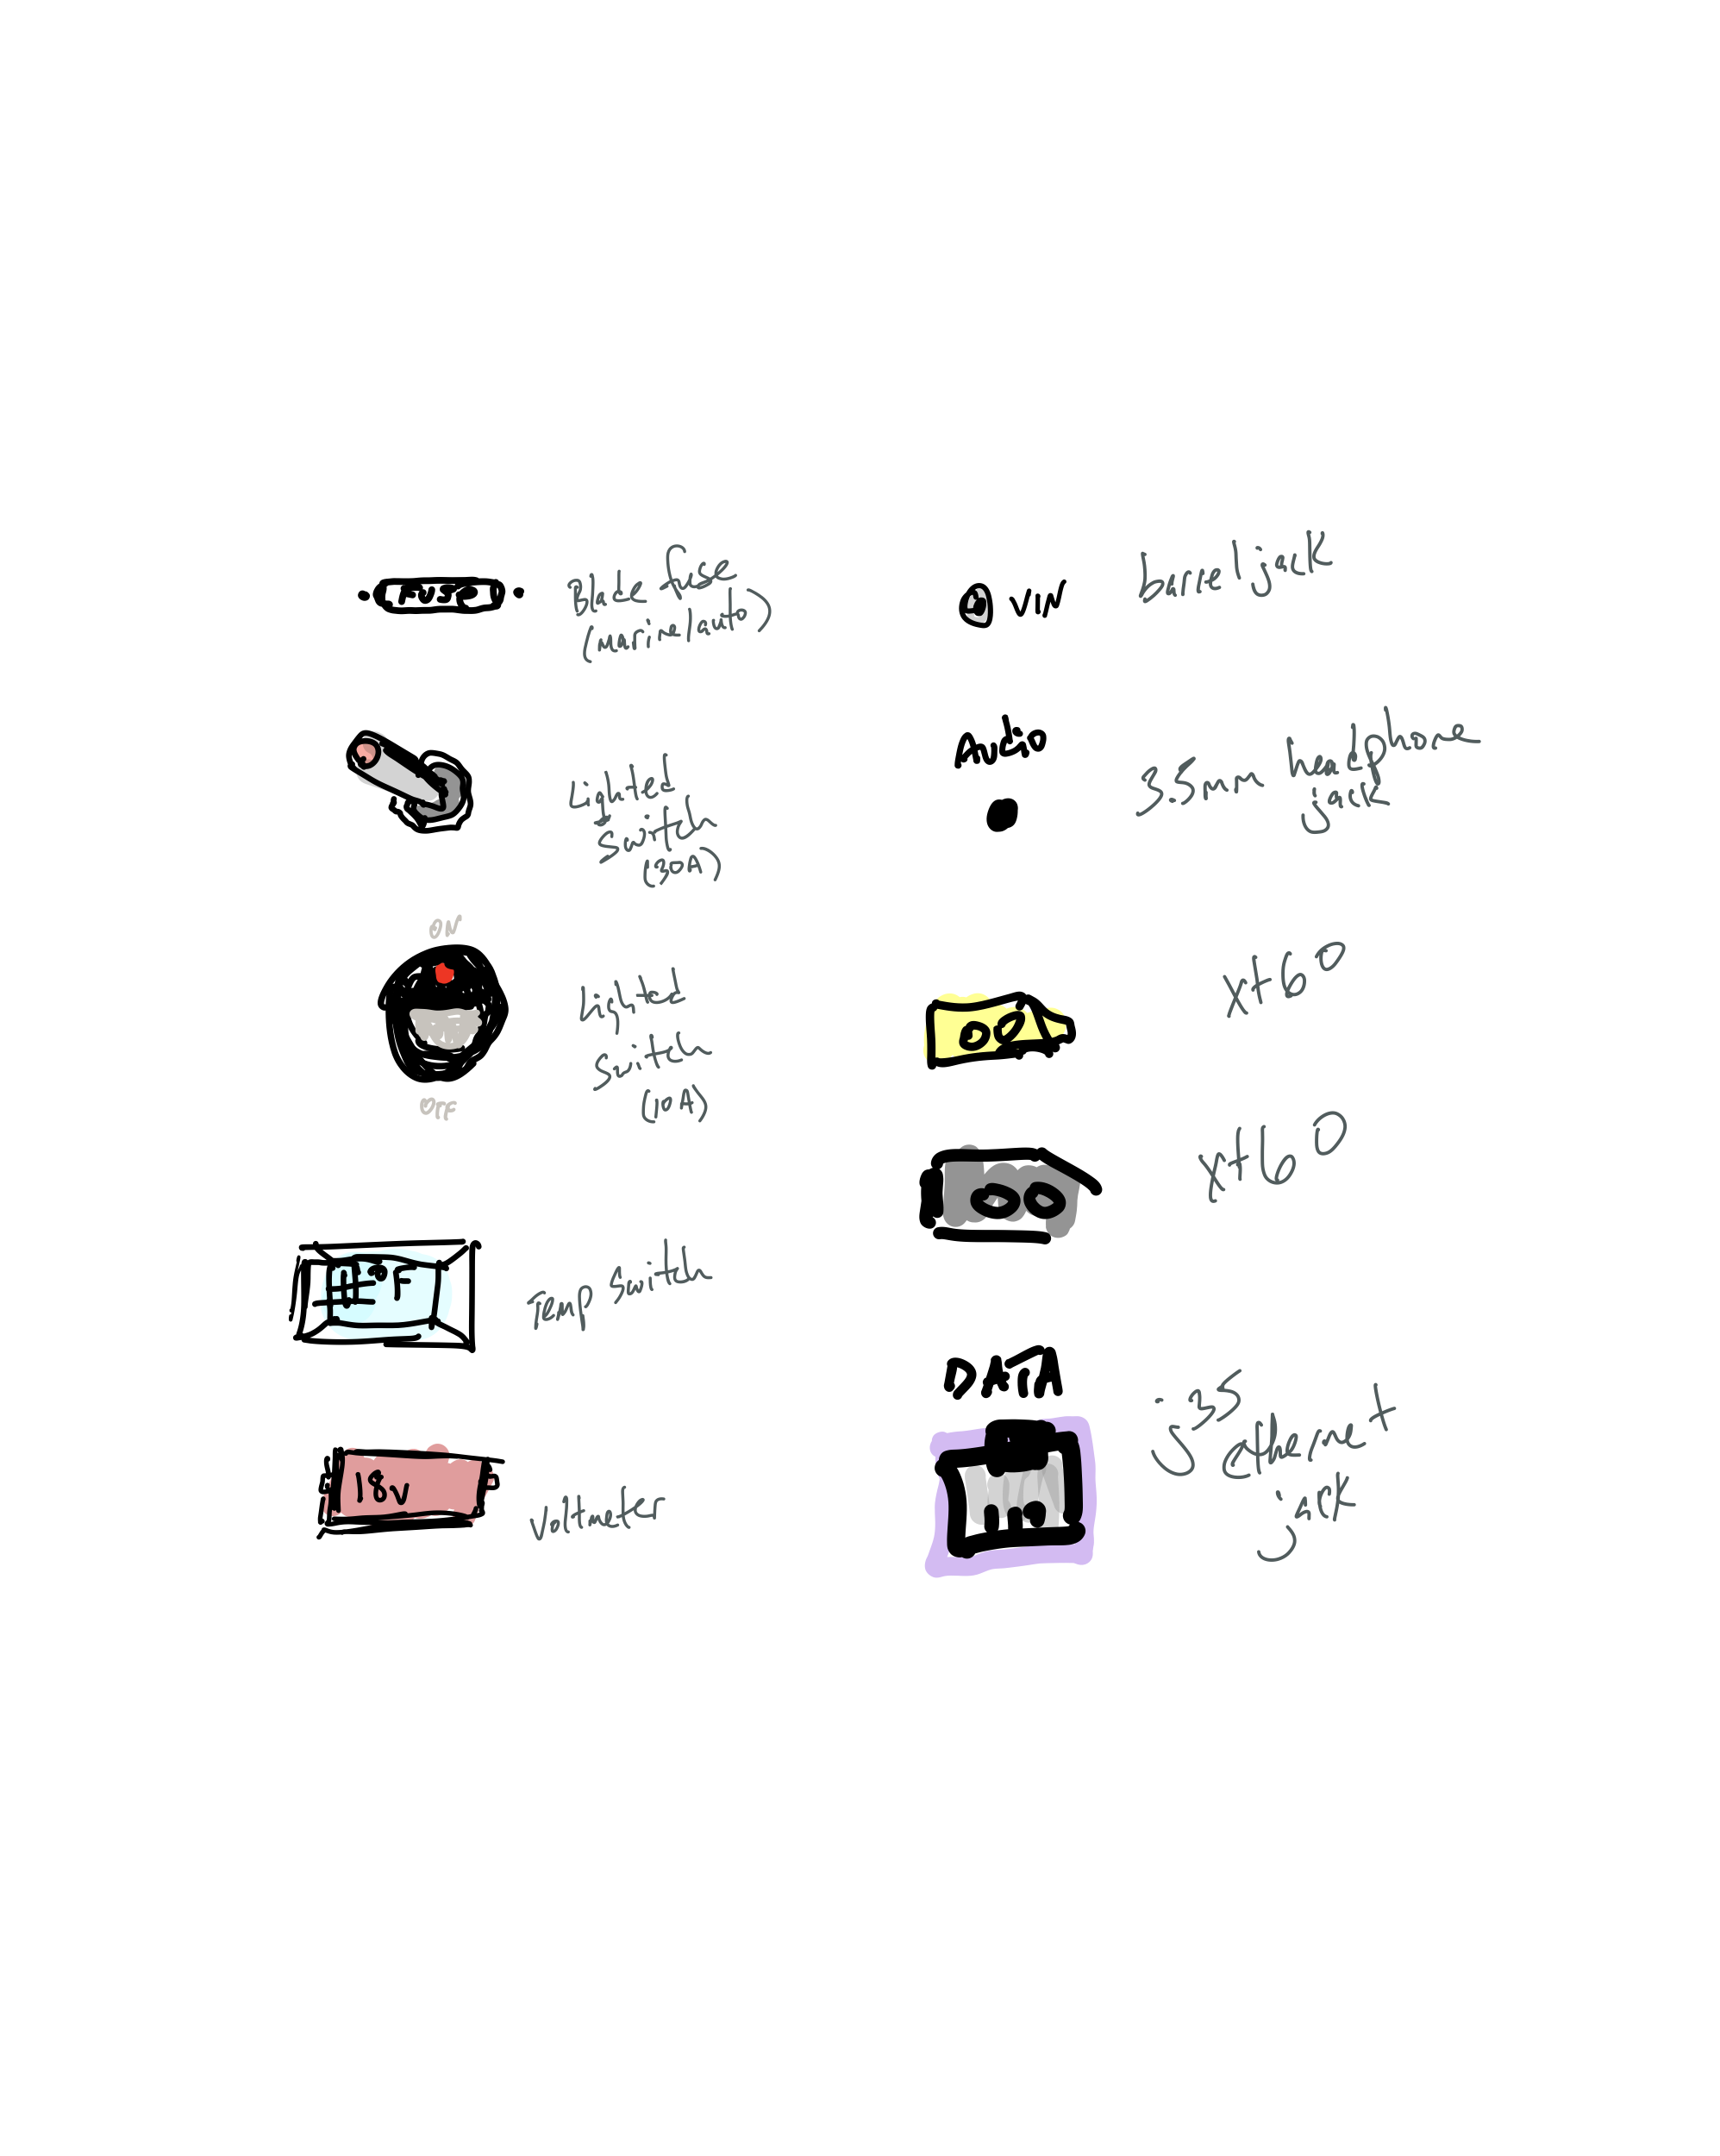 FUSE
Blade fuse
(marine/auto)
Lighted
Switch
(30A)
ON
OFF
Lighted
Switch
(10A)
#°F
Temp switch
18v
Voltmeter
VIN
barrel jack
Audio
3.5mm headphone
jack
xt60
xt60
DATA
j35
ethernet
jack